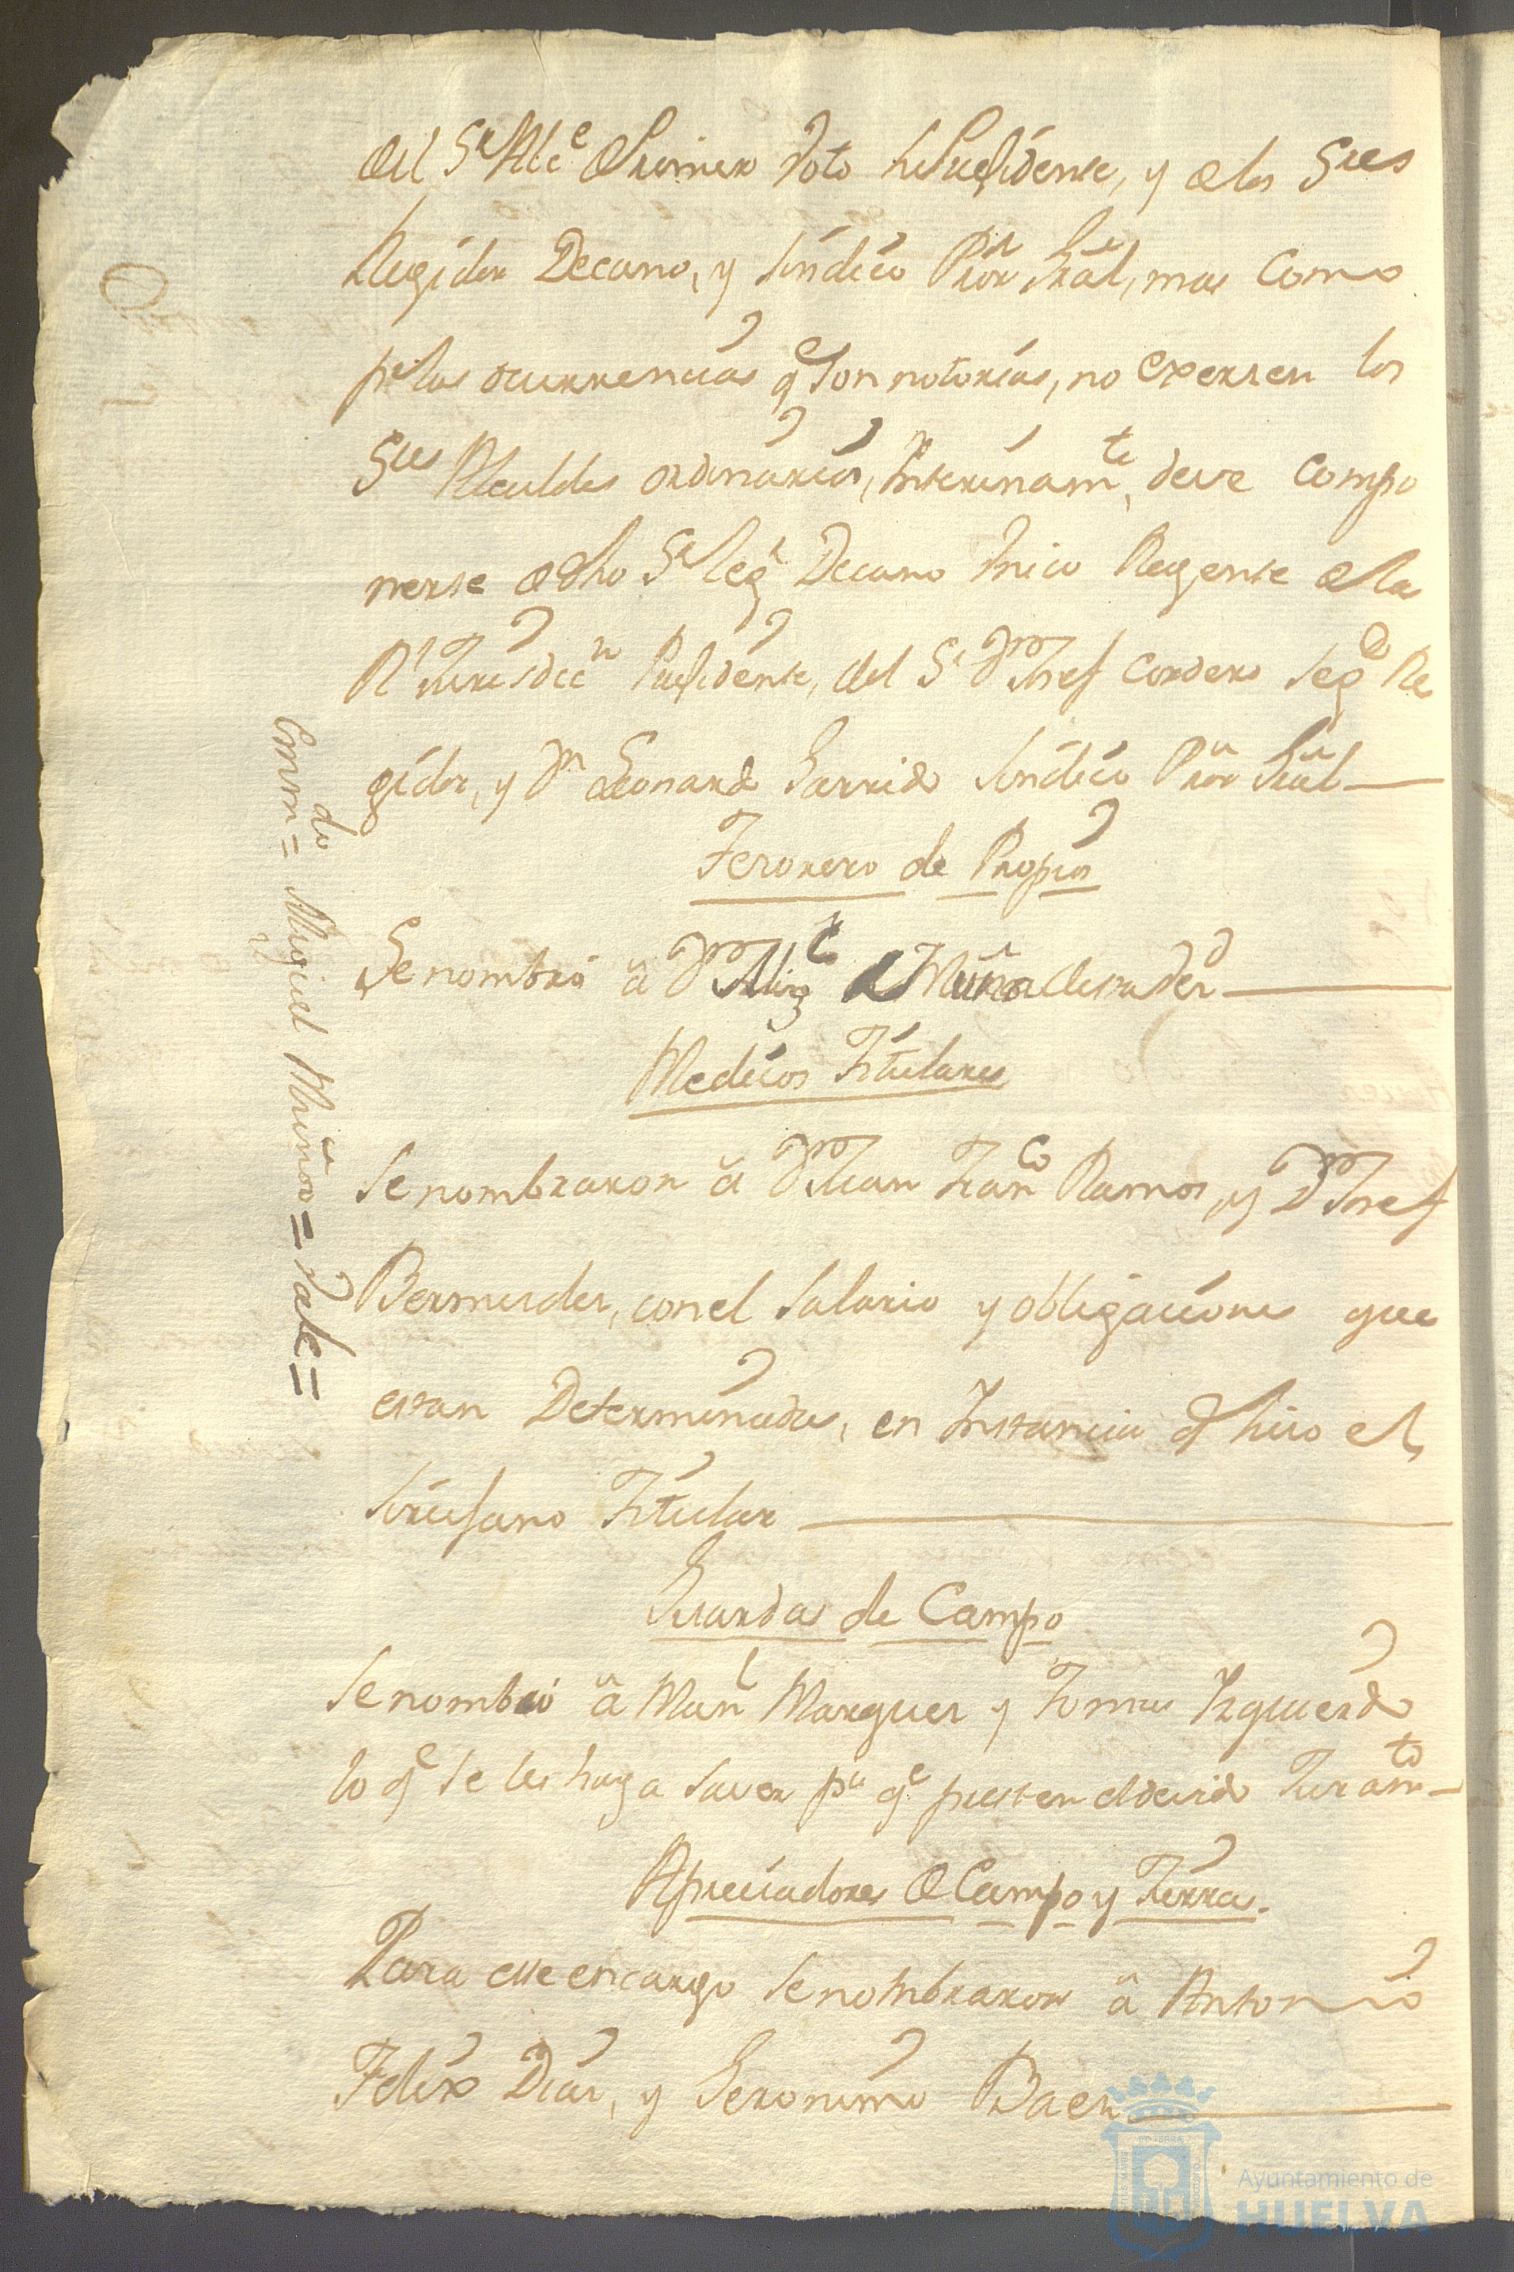 del Sr Alce de Primer Voto Presidente, y de los Sres
Regidor Decano, y Síndico Pror Gral, mas como
pr las ocurrencias qe son notorias, no exersen los
Sres Alcaldes ordinarios, Interinamte, deve compo
nerse de dho Sr Regr Decano Unico Regente de la
Rl Jurisdicn Presidente, del Sr Dn Josef Cordero segdo Re
gidor, y Dn Leonardo Garrido Síndico Pror Gral
Tesorero de Propios
Se nombró a Dn Migl Muñoz
Medicos Titulares
Se nombraron a Dn Juan Franco Ramos, y Dn Josef
Bermudes, con el salario y obligaciones que
estan Determinadas, en Instancia qe hiso el
Sirujano Titular
Guardas de Campo
Se nombró a Manl Marques y Tomas Izquierdo
lo qe se les haga saver pa qe presten el devido Juramto
Apreciadores de Campo y Tierras.
Para este encargo se nombraron a Antonio
Felix Dias, y Geronimo Baes
Enmdo = Miguel Muños = Vale =
Ayuntamiento de
HUELVA